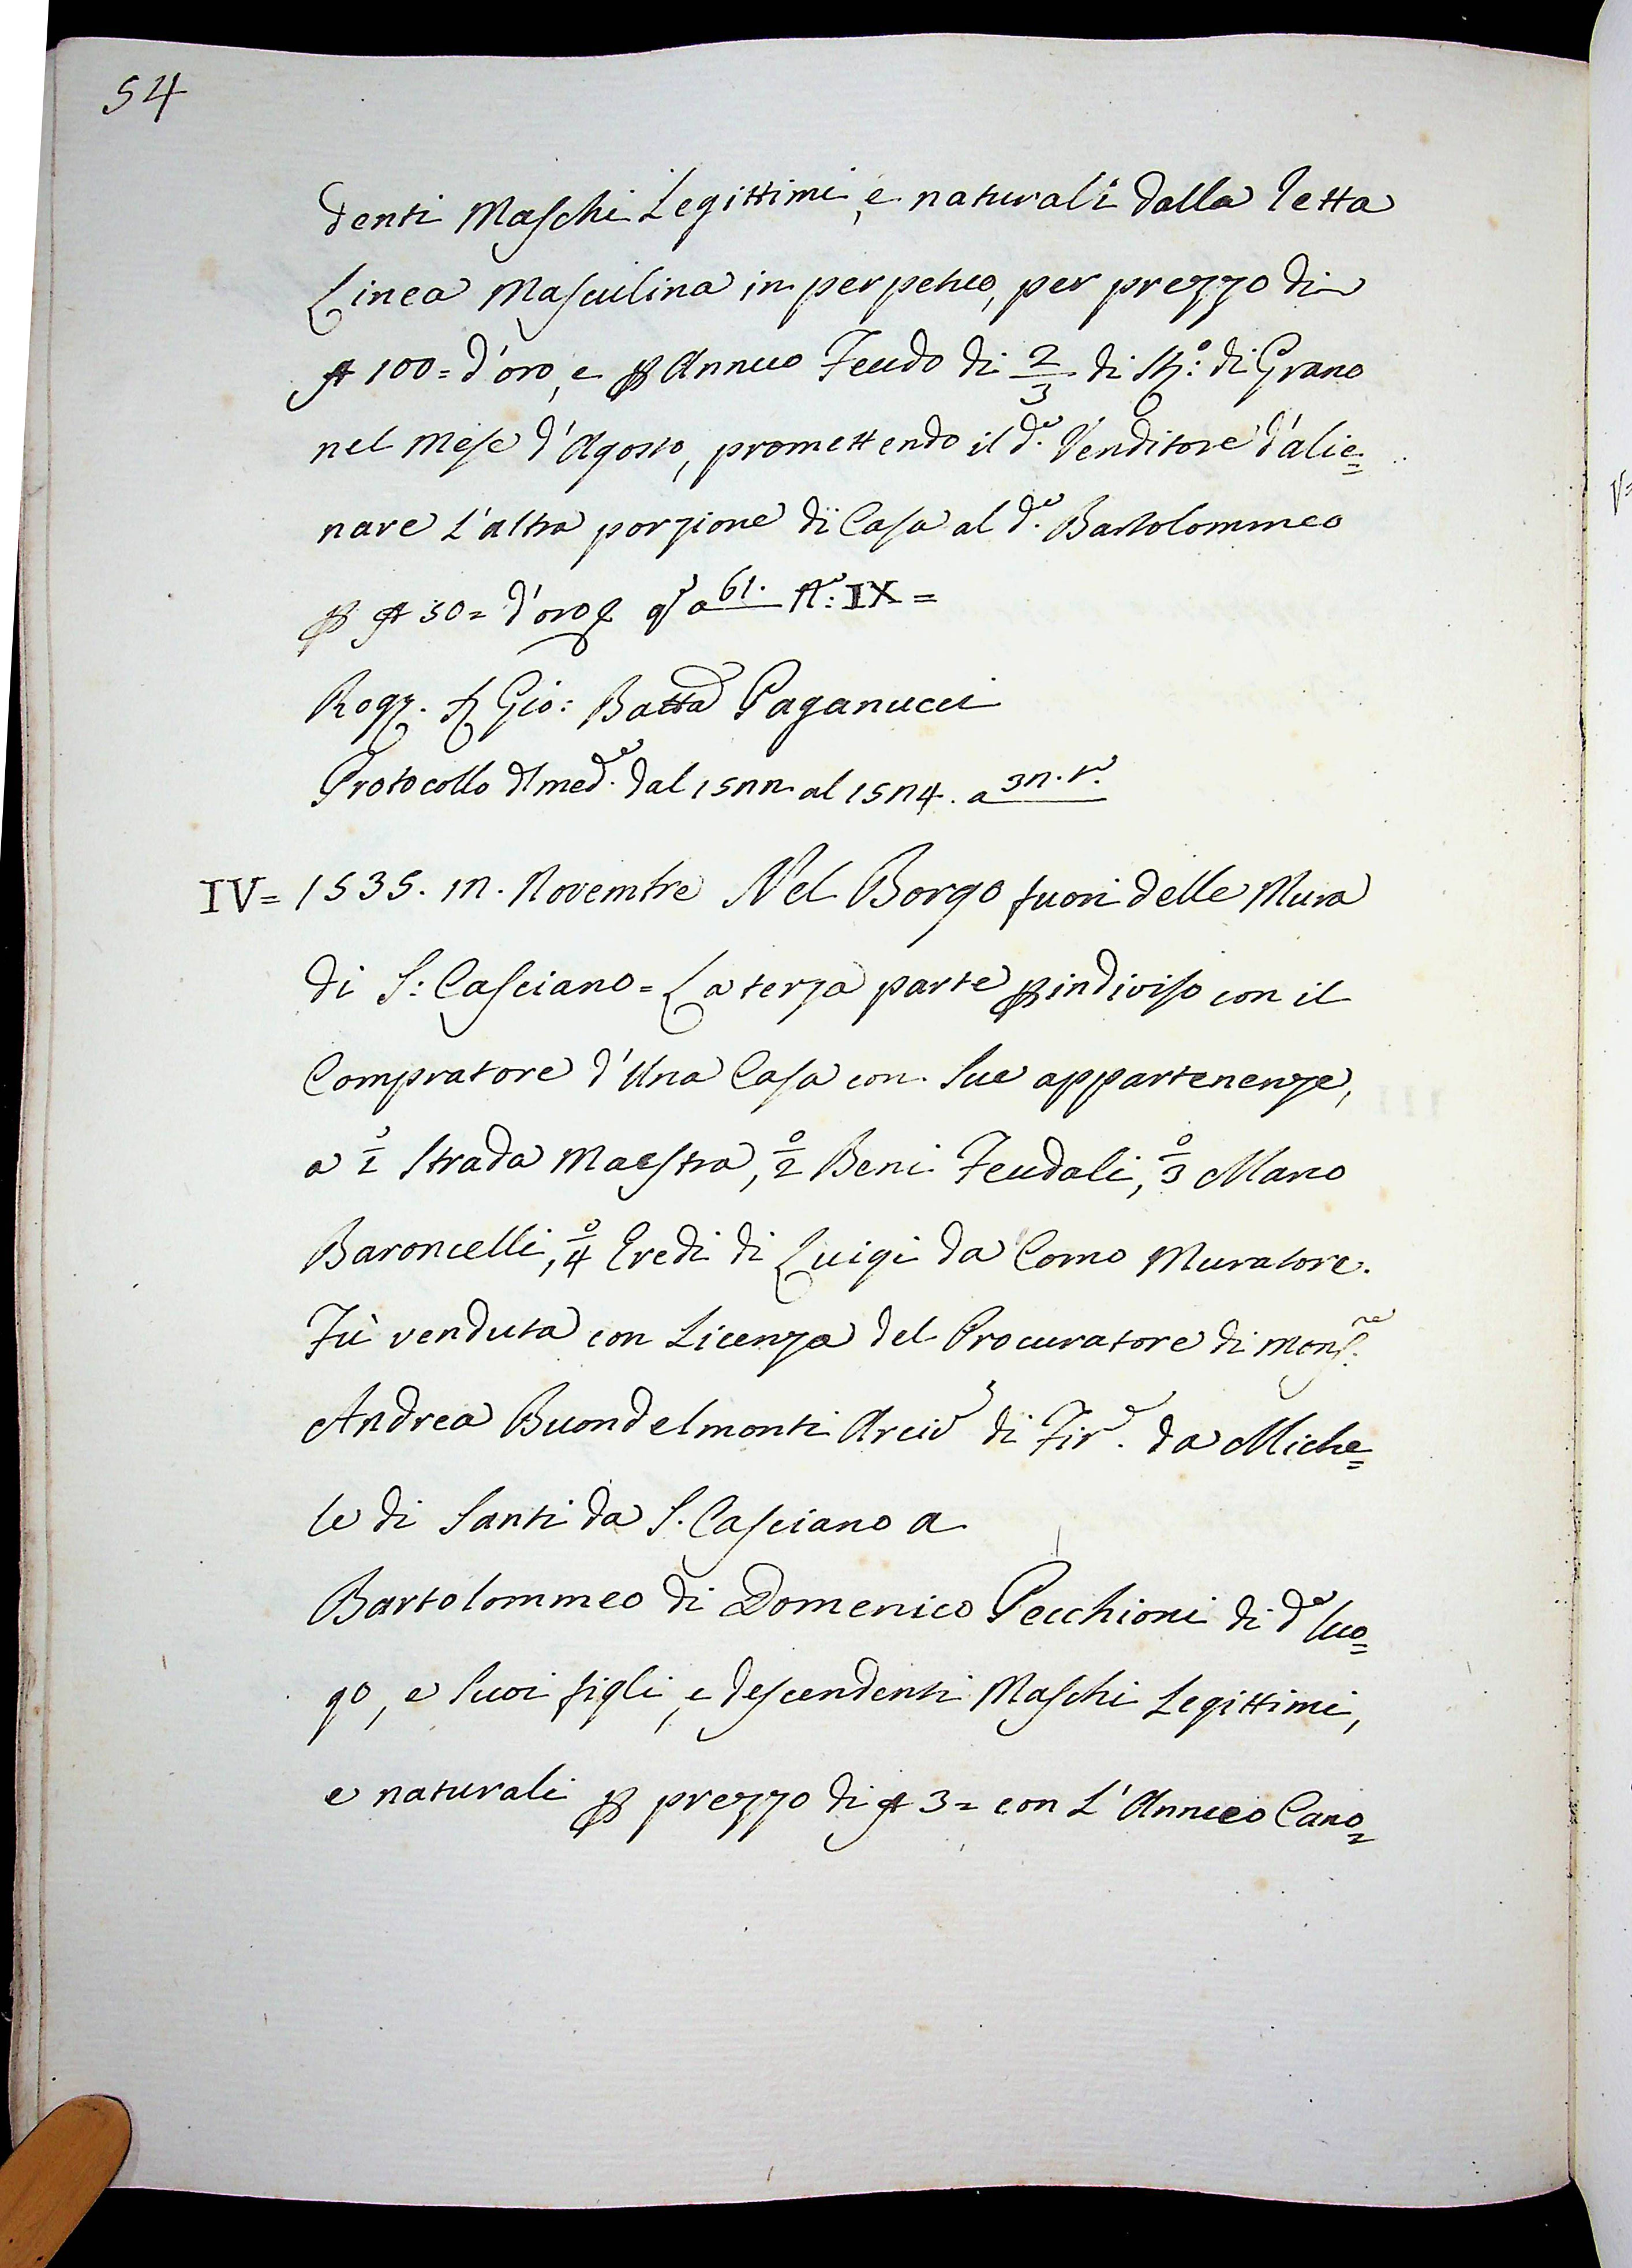 54
denti Maschi Legittimi, e naturali dalla Retta
Linea Masculina in perpetuo, per prezzo di
100= d'oro, e p Annuo Feudo di 2/3 di St.º: di Grano
nel Mese d'Agosto, promettendo il d.º Venditore d'alie=
nare L'altra porzione di Casa al d.º Bartolommeo
p 30= d'oro 61. IX=
Rog. Gio: Batta Paganucci
Protocollo med.º dal 1522. al 1524. a 32. tº
IV= 1535. 12. Novembre Nel Borgo fuori delle Mura
di S: Casciano= La terza parte p indiviso con il
Compratore d'Una Casa con Sue appartenenze,
a 1º Strada Maestra, 2º Beni Feudali, 3º Marco
Baroncelli, 4º Eredi di Luigi da Como Muratore.
Fù venduta con Licenza del Procuratore di Mons.re
Andrea Buondelmonti Arciv.º di Fir.e da Miche=
le di Santi da S. Casciano a
Bartolommeo di Domenico Pecchioni di d.º luo=
go, e Suoi figli, e descendenti Maschi Legittimi,
e naturali p prezzo di 3= con L'Annuo Cano=